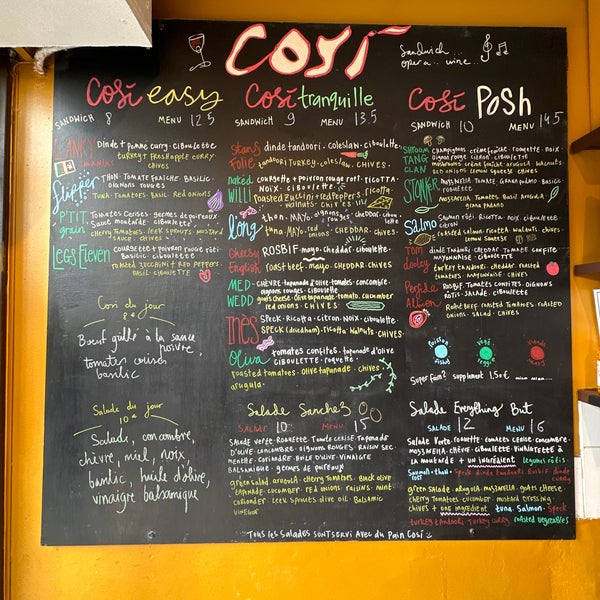 Cosí
Sandwich...
opera.. wine...
Cosí easy
SANDWICH 8 MENU 12.5
MANIA!
Dinde + pomme curry · ciboulette
turkey + fresh apple curry
chives
flipper
Thon · Tomate fraîche · Basilic ·
oignons rouges
Tuna · Tomatoes · Basil · Red onions
P'TIT
grain
Tomates cerises · germes de poireaux
Sauce moutarde · ciboulette
cherry tomatoes · leek sprouts · mustard
sauce · chives
LEGS Eleven
courgette + poivron rouge rôti
Basilic · ciboulette
roasted zucchini + red peppers
basil · ciboulette
Cosi du jour
8€
Boeuf grillé à la sauce
poivre,
tomates cerises
basilic
Salade du jour
10€
Salade, concombre,
chèvre, miel, noix,
basilic, huile d'olive,
vinaigre balsamique
Cosí tranquille
SANDWICH 9 MENU 13.5
Stans
Folie
dinde tandoori · coleslaw · ciboulette
tandoori turkey · coleslaw · CHIVES ·
naked
WILLI
courgette + poivron rouge roti · ricotta
NOIX · CIBOULETTE
roasted zucchini + red peppers · ricotta
walnuts · CHIVES
l'óng
thon · MAYO · oignons rouges · cheddar · ciboulette
tuna · MAYO · red onions · cheddar · chives
Cheesy
English
ROSBIF · mayo · cheddar · ciboulette
roast beef · mayo · cheddar · CHIVES
MED-
WEDD
CHÈVRE · tapenade d'olive · tomates · concombre ·
oignons rouges · ciboulette
goats cheese · olive tapenade · tomato · cucumber
red onions · CHIVES ·
INÈS
SPECK · Ricotta · citron · Noix · ciboulette
Speck (dried ham) · ricotta · walnuts · CHIVES
Oliva
tomates confites · tapenade d'olive
CIBOULETTE · roquette
roasted tomatoes · olive tapenade · chives ·
arugula
Salade Sanchez
SALADE 10 MENU 15
SALADE VERTE · ROQUETTE · Tomate cerise · Tapenade
D'OLIVE · CONCOMBRE · OIGNONS ROUGES · RAISIN SEC ·
menthe · coriandre · HUILE D'OLIVE · VINAIGRE
BALSAMIQUE · germes de poireaux
green salad · arugula · cherry tomatoes · black olive
tapenade · cucumber · red onions · raisins · mint
coriander · leek sprouts · olive oil · Balsamic
vinegar
Cosí Posh
SANDWICH 10 MENU 14.5
SHROOM
TANG
CLAN
champignons · crème fraîche · roquette · noix
oignon rouge · citron · ciboulette
mushrooms · crème fraîche · arugula · walnuts
red onions · lemon squeeze · chives
STONER
Mozzarella · Tomate · Grana padano · Basilic
roquette
Mozzarella · tomatoes · Basil · Arugula
grana padano
Salmo
Saumon rôti · Ricotta · noix · ciboulette
citron
roasted salmon · ricotta · walnuts · chives
lemon squeeze
Tom
dooley
dinde tandoori · cheddar · tomate confite
mayonnaise · ciboulette
turkey tandoori · cheddar · roasted
tomatoes · mayonnaise · CHIVES
Perfide
Albion
Rosbif · Tomates confites · oignons
rotis · salade · ciboulette
Roast beef · roasted tomatoes · roasted
onions · salad · CHIVES
Super faim? supplement 1,50€ miam miam...
Salade Everything But
SALADE 12 MENU 16
Salade verte · roquette · tomates cerise · concombre ·
mozzarella · chèvre · ciboulette · vinaigrette à
la moutarde + un ingrédient légumes rôtis ·
Saumon · thon · Speck · dinde tandoori · Rosbif · dinde
curry
green salade · arugula · mozzarella · goats cheese
cherry tomatoes · cucumber · mustard dressing ·
chives + one ingredient tuna · Salmon · Speck
turkey tandoori · turkey curry · roasted vegetables
Tous les salades sont servi avec du Pain Cosí